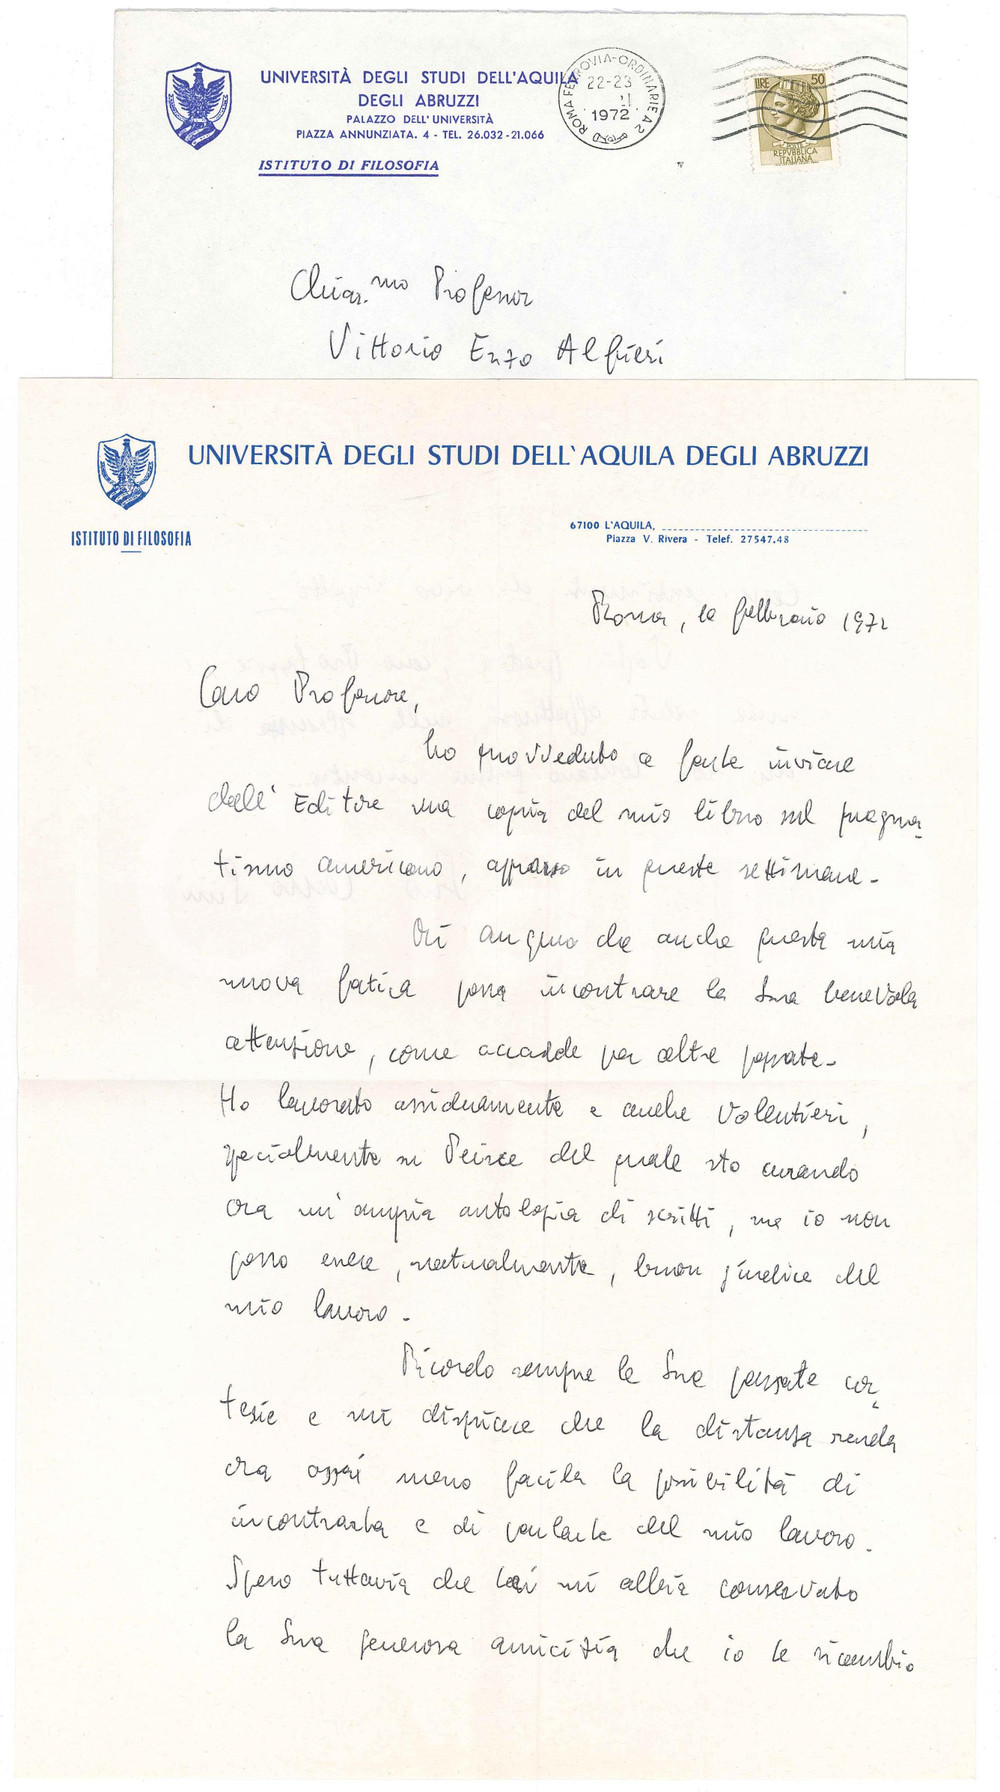 UNIVERSITÀ DEGLI STUDI DELL'AQUILA
DEGLI ABRUZZI
PALAZZO DELL'UNIVERSITÀ
PIAZZA ANNUNZIATA. 4 - TEL. 26.032 - 21.066
ISTITUTO DI FILOSOFIA
ROMA FERROVIA-ORDINARIE A 2
22-23
II
1972
LIRE 50
POSTE
REPVBBLICA
ITALIANA
Chiar.mo Professor
Vittorio Enzo Alfieri
UNIVERSITÀ DEGLI STUDI DELL'AQUILA DEGLI ABRUZZI
ISTITUTO DI FILOSOFIA
67100 L'AQUILA,
Piazza V. Rivera - Telef. 27547.48
Roma, 10 febbraio 1972
Caro Professore,
ho provveduto a farLe inviare
dall'Editore una copia del mio libro sul pragma-
tismo americano, apparso in queste settimane.
Mi auguro che anche questa mia
nuova fatica possa incontrare la Sua benevola
attenzione, come accadde per altre passate.
Ho lavorato assiduamente e anche volentieri,
specialmente su Peirce del quale sto curando
ora un'ampia antologia di scritti, ma io non
posso essere, naturalmente, buon giudice del
mio lavoro.
Ricordo sempre le Sue passate cor-
tesie e mi dispiace che la distanza renda
ora assai meno facile la possibilità di
incontrarLa e di parlarLe del mio lavoro.
Spero tuttavia che Lei mi abbia conservato
la Sua generosa amicizia che io Le ricambio